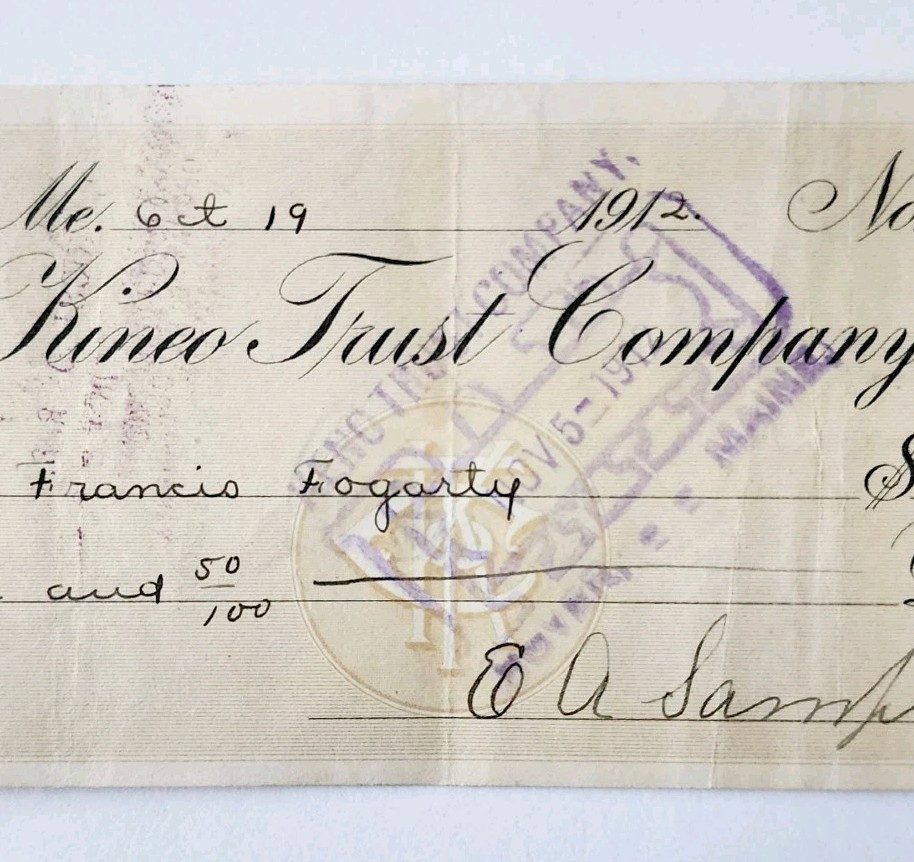 Me. Oct 19 1912. No
Kineo Trust Company
Francis Fogarty $
and 50/100
E A Samp
TRUST COMPANY.
NOV 5 - 191
MAINE
KTC